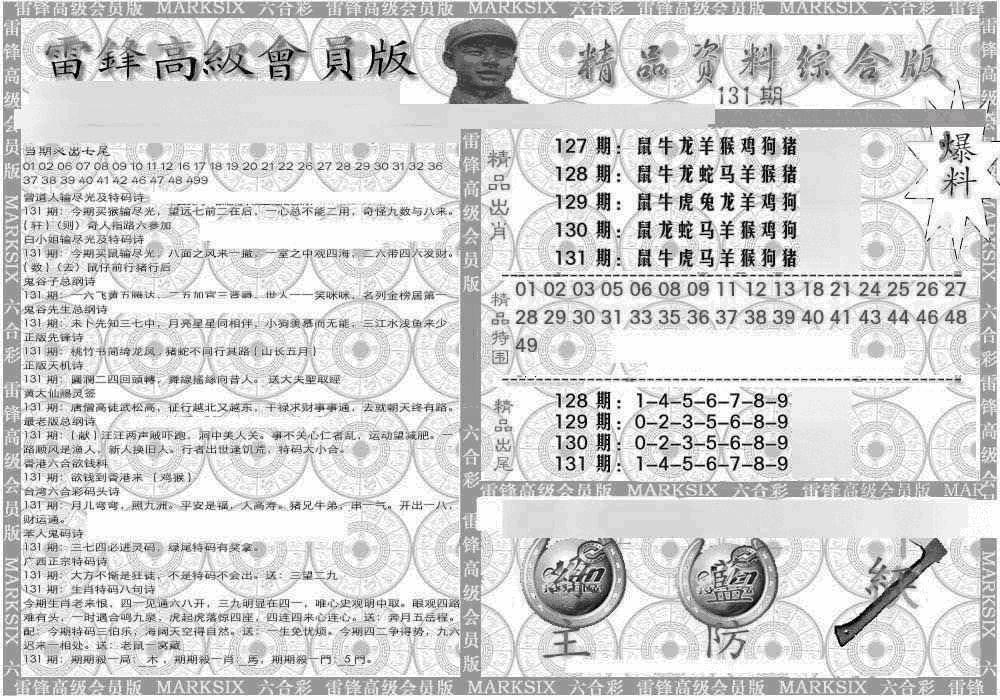 雷锋高级会员版 MARKSIX 六合彩 雷锋高级会员版 MARKSIX 六合彩 雷锋高级会员版 MARKSIX 六合彩 雷锋
雷鋒高級會員版
精品资料综合版
131期
爆料
当期买出七尾
01 02 06 07 08 09 10 11 12 16 17 18 19 20 21 22 26 27 28 29 30 31 32 36
37 38 39 40 41 42 46 47 48 499
曾道人输尽光及特码诗
131 期：今期买猴输尽光，望远七前二在后，一心总不能二用，奇怪九数与八来。
{ 轩 }（则）奇人指路六参加
白小姐输尽光及特码诗
131 期：今期买鼠输尽光，八面之风来一撤，一室之中观四海，二六带四六发财。
{ 数 }（去）鼠仔前行猪行后
鬼谷子总纲诗
131 期：一六飞黄五腾达，二五加官三晋爵，世人一一笑咪咪，名列金榜居第一
鬼谷先生总纲诗
131 期：未卜先知三七中，月亮星星同相伴，小狗羡慕而无能，三江水浅鱼来少
正版先锋诗
131 期：桃竹书简绮龙凤，猪蛇不同行其路 { 山长五月 }
正版天机诗
131 期：圓潤二四回頭轉，舞線搖綠向昔人。 送大夫聖取經
黄大仙赐灵签
131 期：唐僧高徒武松高，征行越北又越东，干禄求财事事通，去就朝天终有路。
最老版总纲诗
131 期：{ 献 } 汪汪两声贼吓跑，洞中美人关。事不关心仁者乱，运动望减肥。一
路顺风是渔人，新人换旧人。行者出世逢饥荒，特码大小合。
香港六合欲钱料
131 期：欲钱到香港来 { 鸡猴 }
台湾六合彩码头诗
131 期：月儿弯弯，照九洲。平安是福，人高寿。猪兄牛弟，串一气。开出一八，
财运通。
本人鬼码诗
131 期：三七四必进灵码，绿尾特码有奖拿。
广西正宗特码诗
131 期：大方不惭是狂徒，不是特码不会出。送：三望二九
131 期：生肖特码八句诗
今期生肖老来恨，四一见通六八开，三九明显在四一，唯心史观明中取。眼观四路
难有头，一时遇合鸣九泉，虎起虎落惊四座，四连四来心连心。送：奔月五岳程。
配：今期特码三伯乐，海阔天空得自然。送：一生免忧烦。今期四二争得势，九六
迟来一相处。送：老鼠一窝藏
131 期：期期殺一局：木，期期殺一肖：馬，期期殺一門：5 門。
精品出肖
127 期：鼠牛龙羊猴鸡狗猪
128 期：鼠牛龙蛇马羊猴猪
129 期：鼠牛虎兔龙羊鸡狗
130 期：鼠龙蛇马羊猴鸡狗
131 期：鼠牛虎马羊猴狗猪
精品特围
01 02 03 05 06 08 09 11 12 13 18 21 24 25 26 27
28 29 30 31 33 35 36 37 38 39 40 41 43 44 46 48
49
精品出尾
128 期：1-4-5-6-7-8-9
129 期：0-2-3-5-6-8-9
130 期：0-2-3-5-6-8-9
131 期：1-4-5-6-7-8-9
雷锋高级会员版 MARKSIX 六合彩 雷锋高级会员版 MAR
主
防
雷锋高级会员版 MARKSIX 六合彩 雷锋高级会员版 MARKSIX 六合彩 雷锋高级会员版 MARKSIX 六合彩 雷锋